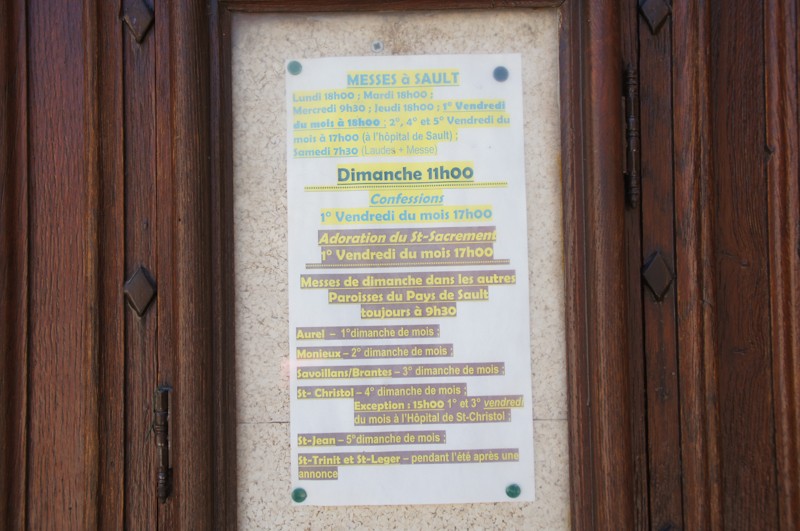 MESSES à SAULT
Lundi 18h00 ; Mardi 18h00 ;
Mercredi 9h30 ; Jeudi 18h00 ; 1° Vendredi
du mois à 18h00 ; 2°, 4° et 5° Vendredi du
mois à 17h00 (à l'hôpital de Sault) ;
Samedi 7h30 (Laudes + Messe)
Dimanche 11h00
Confessions
1° Vendredi du mois 17h00
Adoration du St-Sacrement
1° Vendredi du mois 17h00
Messes de dimanche dans les autres
Paroisses du Pays de Sault
toujours à 9h30
Aurel – 1°dimanche de mois ;
Monieux – 2° dimanche de mois ;
Savoillans/Brantes – 3° dimanche de mois ;
St- Christol – 4° dimanche de mois ;
Exception : 15h00 1° et 3° vendredi
du mois à l'Hôpital de St-Christol ;
St-Jean – 5°dimanche de mois ;
St-Trinit et St-Leger – pendant l'été après une
annonce